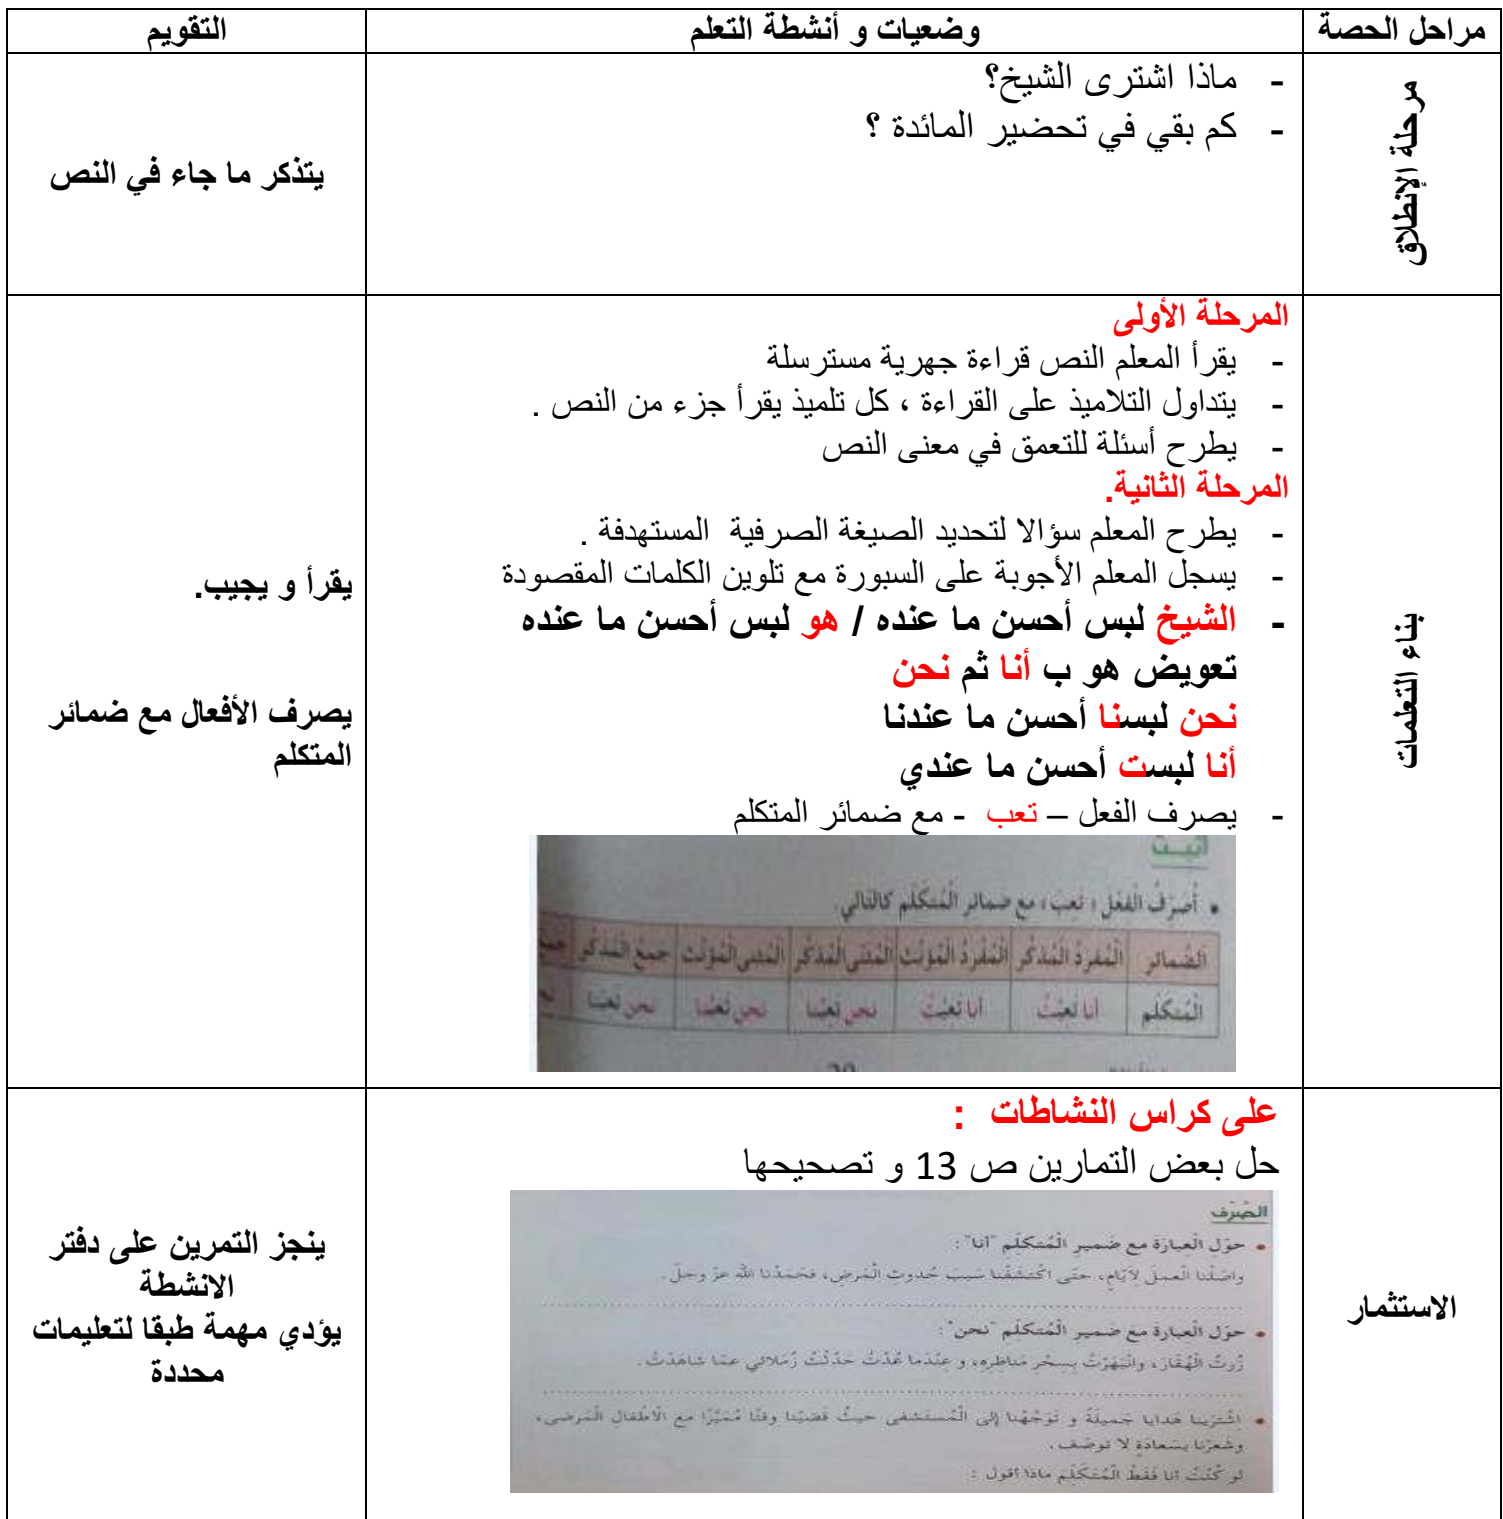 مراحل الحصة
وضعيات و أنشطة التعلم
التقويم
مرحلة الإنطلاق
- ماذا اشترى الشيخ؟
- كم بقي في تحضير المائدة ؟
يتذكر ما جاء في النص
بناء التعلمات
المرحلة الأولى
- يقرأ المعلم النص قراءة جهرية مسترسلة
- يتداول التلاميذ على القراءة ، كل تلميذ يقرأ جزء من النص .
- يطرح أسئلة للتعمق في معنى النص
المرحلة الثانية.
- يطرح المعلم سؤالا لتحديد الصيغة الصرفية المستهدفة .
- يسجل المعلم الأجوبة على السبورة مع تلوين الكلمات المقصودة
- الشيخ لبس أحسن ما عنده / هو لبس أحسن ما عنده
تعويض هو ب أنا ثم نحن
نحن لبسنا أحسن ما عندنا
أنا لبست أحسن ما عندي
- يصرف الفعل – تعب - مع ضمائر المتكلم
أثبت
• أُصَرِّفُ الْفِعْلَ : تَعِبَ، مع ضمائر الْمُتكَلِّم كالتالي.
الضَّمائر الْمُفردُ الْمُذكَّر الْمُفردُ الْمُؤنَّث الْمُثنى الْمُذكَّر الْمُثنى الْمُؤنَّث جمع الْمُذكَّر
الْمُتكَلِّم أنا تَعِبْتُ أنا تَعِبْتُ نحن تَعِبْنا نحن تَعِبْنا نحن تَعِبْنا
يقرأ و يجيب.
يصرف الأفعال مع ضمائر
المتكلم
الاستثمار
على كراس النشاطات :
حل بعض التمارين ص 13 و تصحيحها
الصّرف
• حوّل الْعِبارَة مع ضَمير الْمُتكلّم "أنا" :
واصَلْنا الْعملَ لأيّامٍ، حتّى اكْتشفْنا سَببَ حُدوث الْمَرض، فحَمدْنا الله عزّ وجلّ.
• حوّل الْعِبارة معَ ضَمير الْمُتكلّم "نحن" :
زُرتُ الْهُقّارَ، وانْبَهَرْتُ بِسِحْرِ مَناظِرِه، و عِنْدَما عُدْتُ حَدَّثْتُ زُمَلائي عمّا شاهَدْتُ.
• اشْتَرَينا هَدايا جَميلَةً و تَوَجَّهْنا إلى الْمُستَشفى حيثُ قَضيْنا وقتًا مُمَيَّزًا مع الأطْفال الْمَرضى،
وشَعرْنا بسَعادَةٍ لا تُوصَف.
لو كُنْتَ أنا فَقطْ الْمُتَكَلِّم ماذا أقول :
ينجز التمرين على دفتر
الانشطة
يؤدي مهمة طبقا لتعليمات
محددة